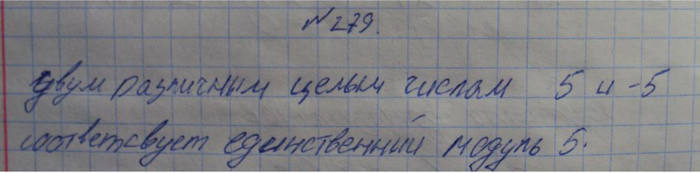 №279.
двум различным целым числам 5 и -5
соответсвует единственный модуль 5.